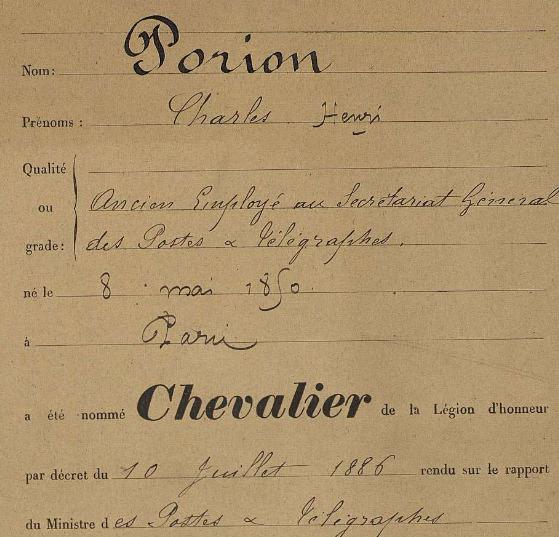 Nom: Porion
Prénoms : Charles Henri
Qualité
ou Ancien Employé au Secrétariat Général
grade: des Postes & Télégraphes.
né le 8 mai 1850.
à Paris
a été nommé Chevalier de la Légion d'honneur
par décret du 10 Juillet 1886 rendu sur le rapport
du Ministre des Postes & Télégraphes